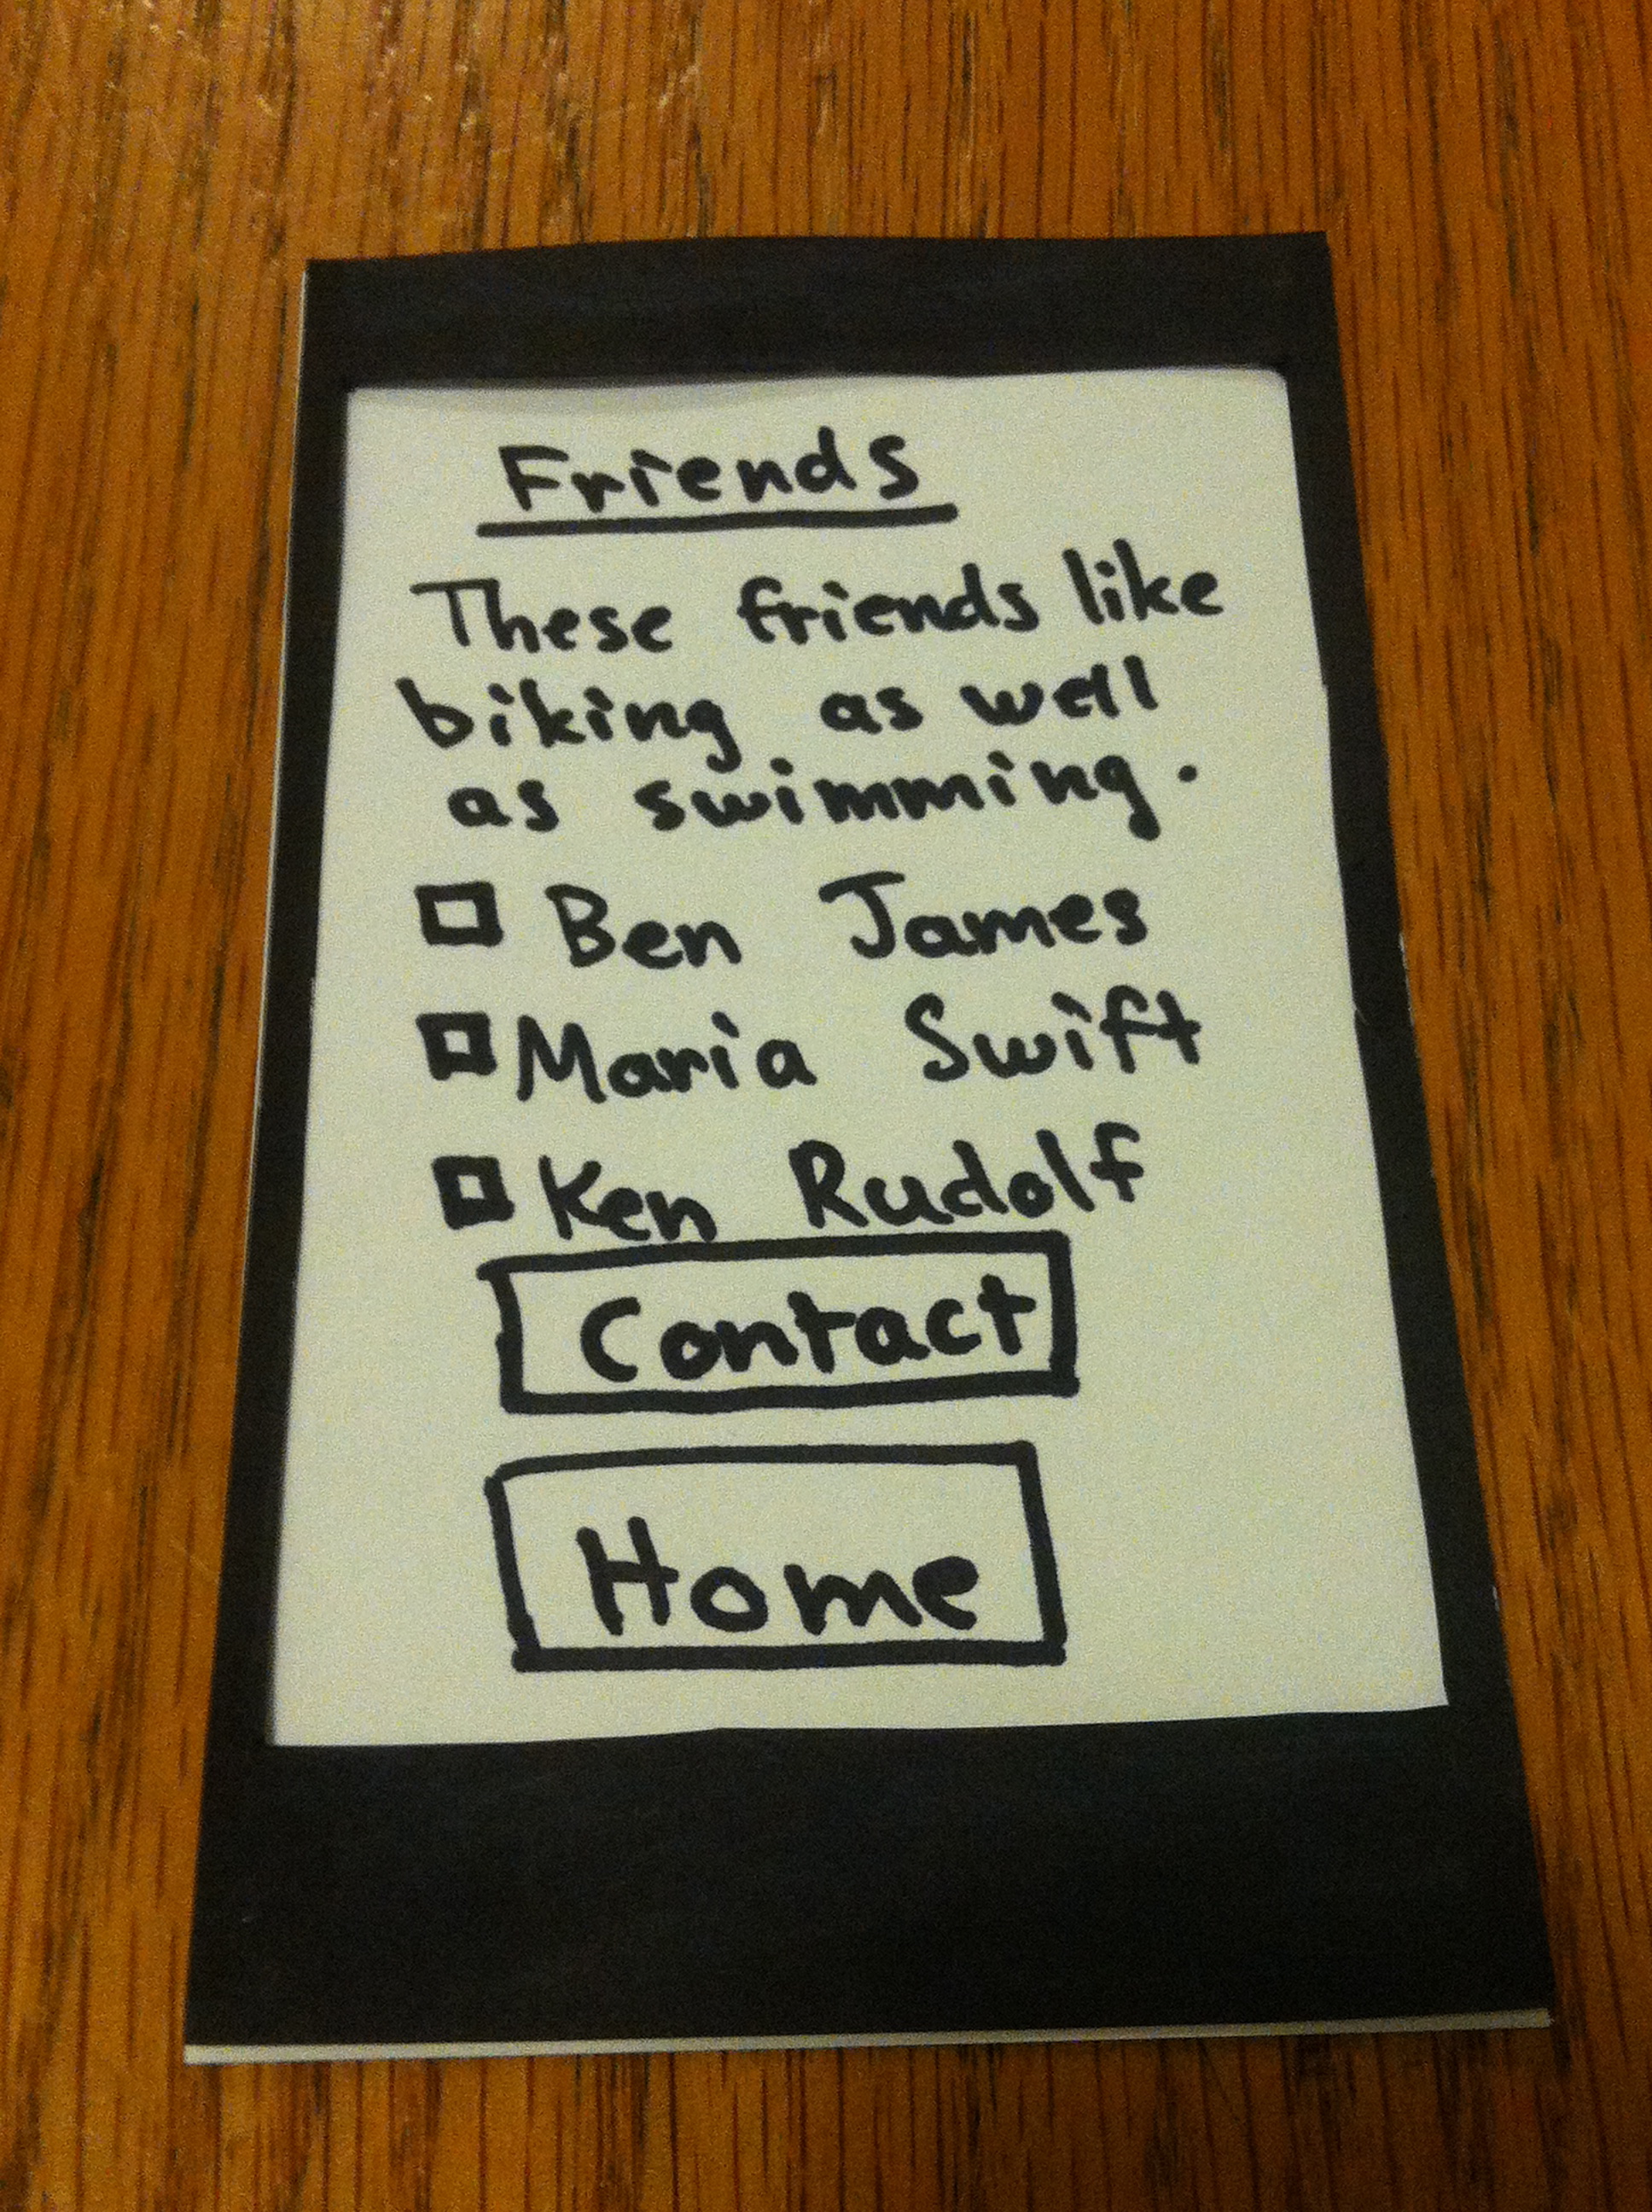 Friends
These friends like
biking as well
as swimming.
Ben James
Maria Swift
Ken Rudolf
Contact
Home